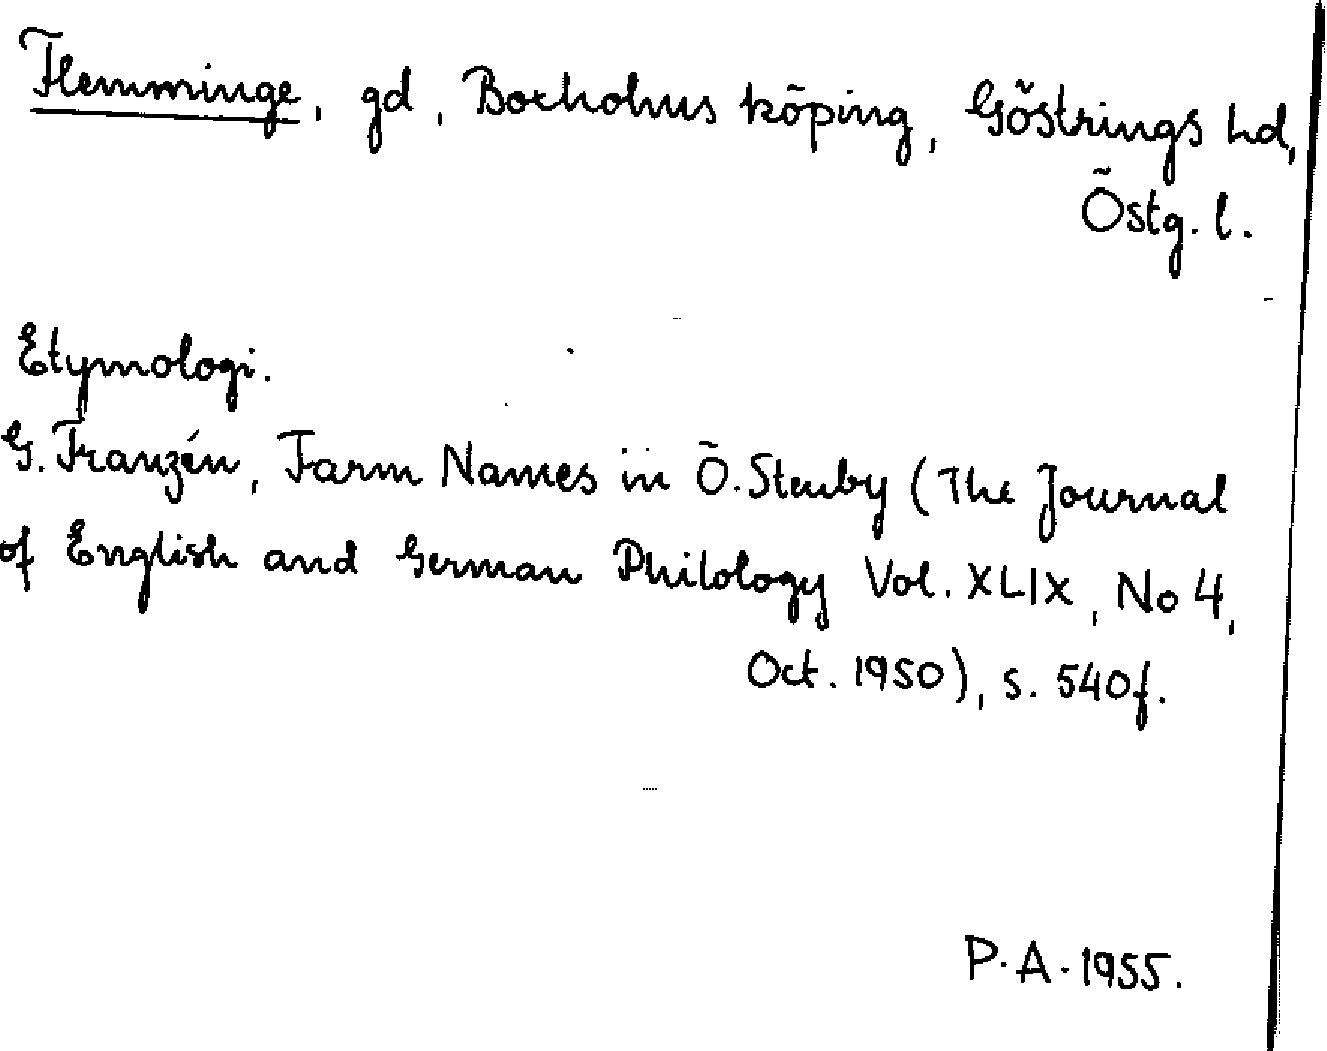 Flemminge, gd, Boxholms köping, Göstrings hd,
Östg. l.
Etymologi.
G. Franzén, Farm Names in Ö. Stenby (The Journal
of English and German Philology Vol. XLIX, No 4,
Oct. 1950), s. 540f.
P. A. 1955.